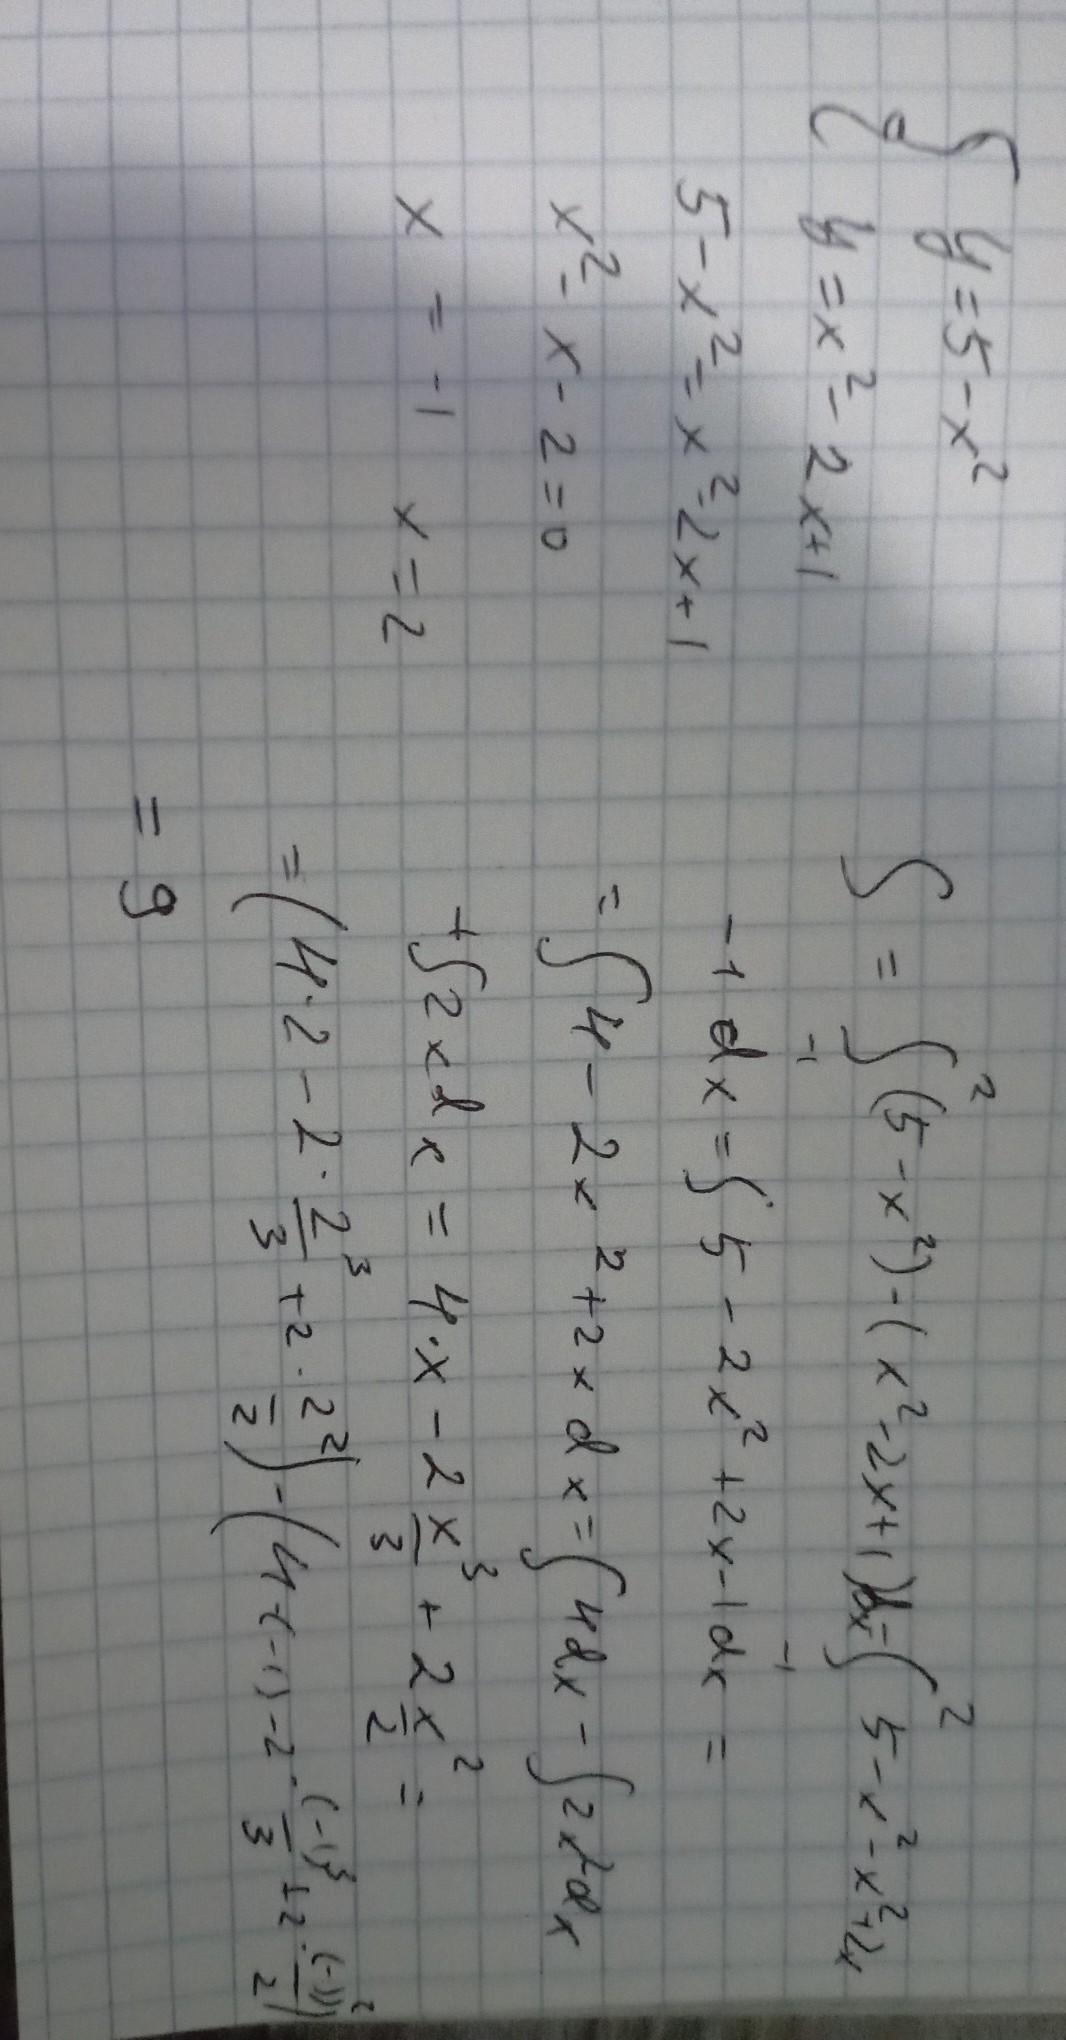 { y = 5 - x²
y = x² - 2x+1
5 - x² = x² - 2x + 1
x² - x - 2 = 0
x = -1 x = 2
S = ∫₋₁² (5 - x²) - (x² - 2x+1)dx = ∫₋₁² 5 - x² - x² + 2x
- 1 dx = ∫ 5 - 2x² + 2x - 1 dx =
= ∫ 4 - 2x² + 2x dx = ∫ 4dx - ∫ 2x² dx
+ ∫ 2x dx = 4·x - 2 x³/3 + 2 x²/2 =
= (4·2 - 2· 2³/3 + 2· 2²/2) - (4·(-1) - 2· (-1)³/3 + 2· (-1)²/2)
= 9